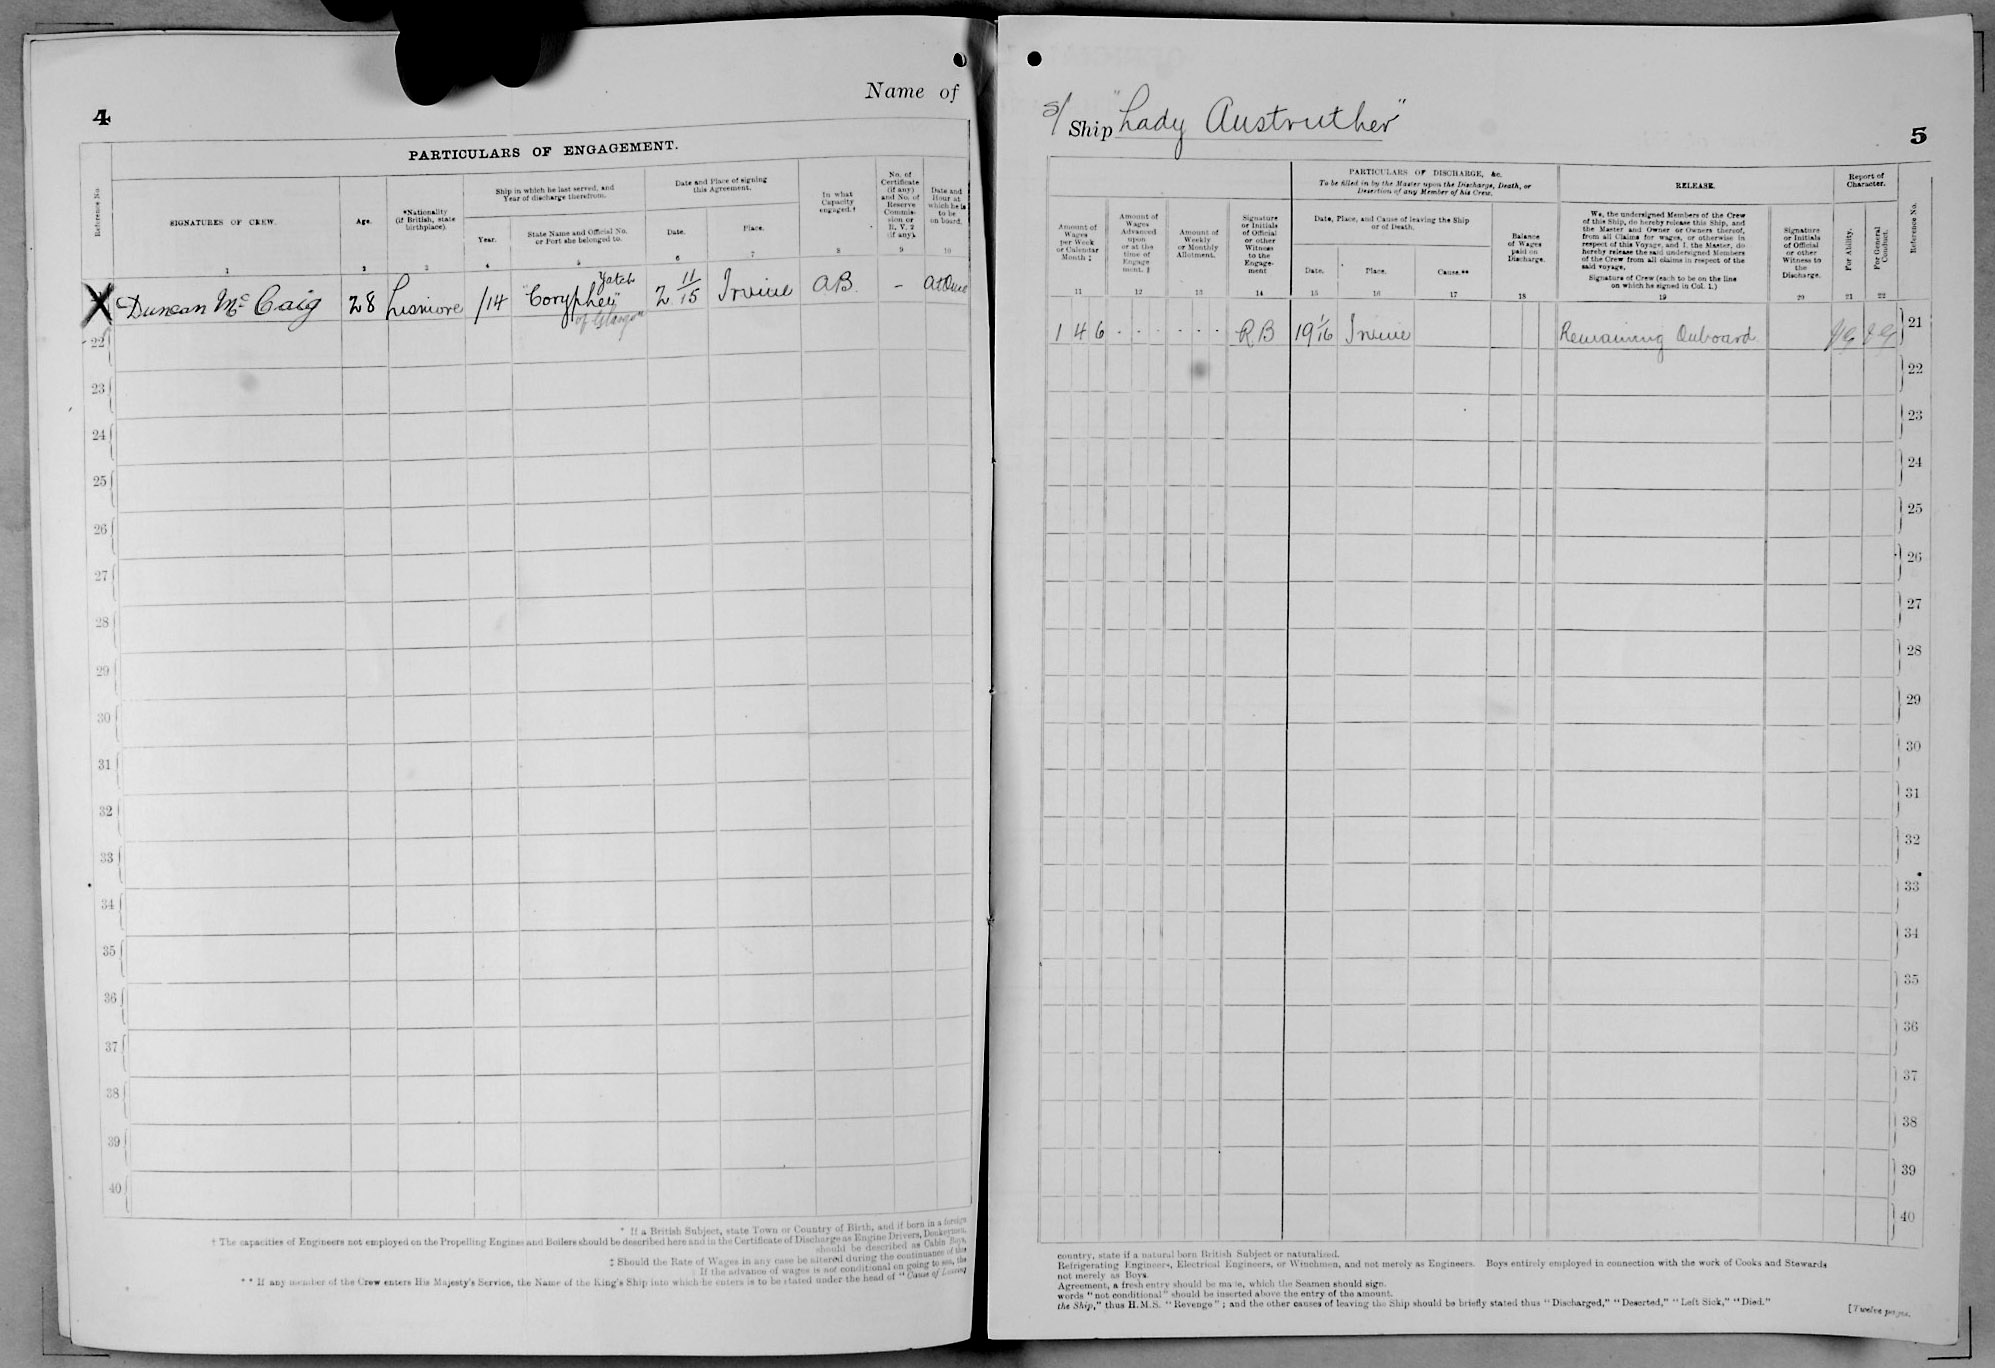 4
Name of
PARTICULARS OF ENGAGEMENT.
Reference No.
SIGNATURES OF CREW.
Age.
*Nationality
(if British, state
birthplace).
Ship in which he last served, and
Year of discharge therefrom.
Year.
State Name and Official No.
or Port she belonged to.
Date and Place of signing
this Agreement.
Date.
Place.
In what
Capacity
engaged.†
No. of
Certificate
(if any)
and No. of
Reserve
Commis-
sion or
R. V. 2
(if any).
Date and
Hour at
which he is
to be
on board.
1 2 3 4 5 6 7 8 9 10
Duncan McCaig 28 Lismore /14 "Coryphee" Yatch of Glasgow 2 11/15 Irvine AB. - At Once
22
23
24
25
26
27
28
29
30
31
32
33
34
35
36
37
38
39
40
* If a British Subject, state Town or Country of Birth, and if born in a foreign
† The capacities of Engineers not employed on the Propelling Engines and Boilers should be described here and in the Certificate of Discharge as Engine Drivers, Donkeymen,
should be described as Cabin Boys,
‡ Should the Rate of Wages in any case be altered during the continuance of this
If the advance of wages is not conditional on going to sea, the
** If any member of the Crew enters His Majesty's Service, the Name of the King's Ship into which he enters is to be stated under the head of "Cause of Leaving
S/ Ship "Lady Anstruther"
5
PARTICULARS OF DISCHARGE, &c.
To be filled in by the Master upon the Discharge, Death, or
Desertion of any Member of his Crew.
RELEASE.
Report of
Character.
Amount of
Wages
per Week
or Calendar
Month ‡
Amount of
Wages
Advanced
upon
or at the
time of
Engage
ment. ‡
Amount of
Weekly
or Monthly
Allotment.
Signature
or Initials
of Official
or other
Witness
to the
Engage-
ment
Date, Place, and Cause of leaving the Ship
or of Death.
Date.
Place.
Cause.**
Balance
of Wages
paid on
Discharge.
We, the undersigned Members of the Crew
of this Ship, do hereby release this Ship, and
the Master and Owner or Owners thereof,
from all Claims for wages, or otherwise in
respect of this Voyage, and I, the Master, do
hereby release the said undersigned Members
of the Crew from all claims in respect of the
said voyage.
Signature of Crew (each to be on the line
on which he signed in Col. 1.)
Signature
or Initials
of Official
or other
Witness to
the
Discharge.
For Ability.
For General
Conduct.
Reference No.
11 12 13 14 15 16 17 18 19 20 21 22
1 4 6 . . . . . . RB 19 1/16 Irvine Remaining Onboard VG VG 21
22
23
24
25
26
27
28
29
30
31
32
33
34
35
36
37
38
39
40
country, state if a natural born British Subject or naturalized.
Refrigerating Engineers, Electrical Engineers, or Winchmen, and not merely as Engineers. Boys entirely employed in connection with the work of Cooks and Stewards
not merely as Boys.
Agreement, a fresh entry should be made, which the Seamen should sign.
words "not conditional" should be inserted above the entry of the amount.
the Ship," thus H.M.S. "Revenge"; and the other causes of leaving the Ship should be briefly stated thus "Discharged," "Deserted," "Left Sick," "Died."
[Twelve pages.